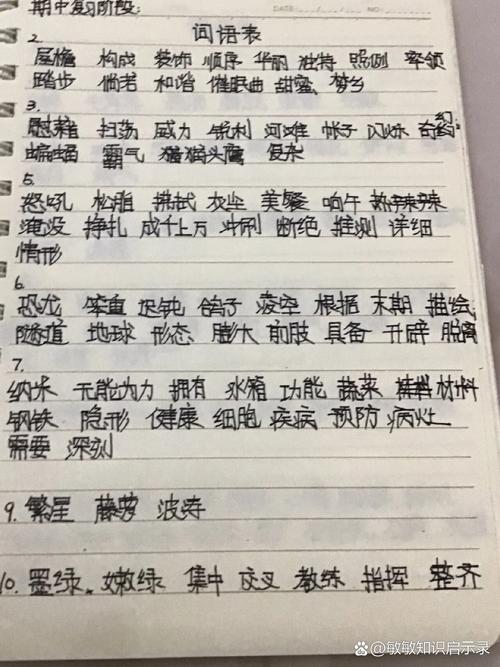 期中复习阶段:
DATE: / / NO:
词语表
2.
屋檐 构成 装饰 顺序 华丽 独特 照例 率领
踏步 倘若 和谐 催眠曲 甜蜜 梦乡
3.
慰藉 扫荡 威力 锐利 河滩 帐子 闪烁 奇幻
蝙蝠 霸气 猫头鹰 复杂
5.
怒吼 松脂 拂拭 灰尘 美餐 晌午 热辣辣
淹没 挣扎 成千上万 冲刷 断绝 推测 详细
情形
6.
恐龙 笨重 迟钝 鸽子 凌空 根据 末期 描绘
隧道 地球 形态 膨大 前肢 具备 开辟 脱离
7.
纳米 无能为力 拥有 冰箱 功能 蔬菜 材料
钢铁 隐形 健康 细胞 疾病 预防 病灶
需要 深刻
9. 繁星 藤萝 波涛
10. 墨绿 嫩绿 集中 交叉 教练 指挥 整齐
敏敏知识启示录